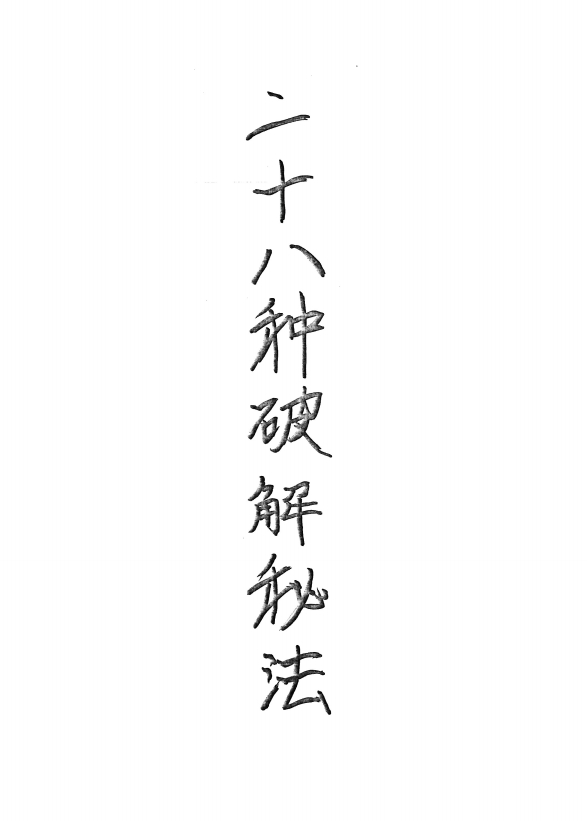 二十八种破解秘法